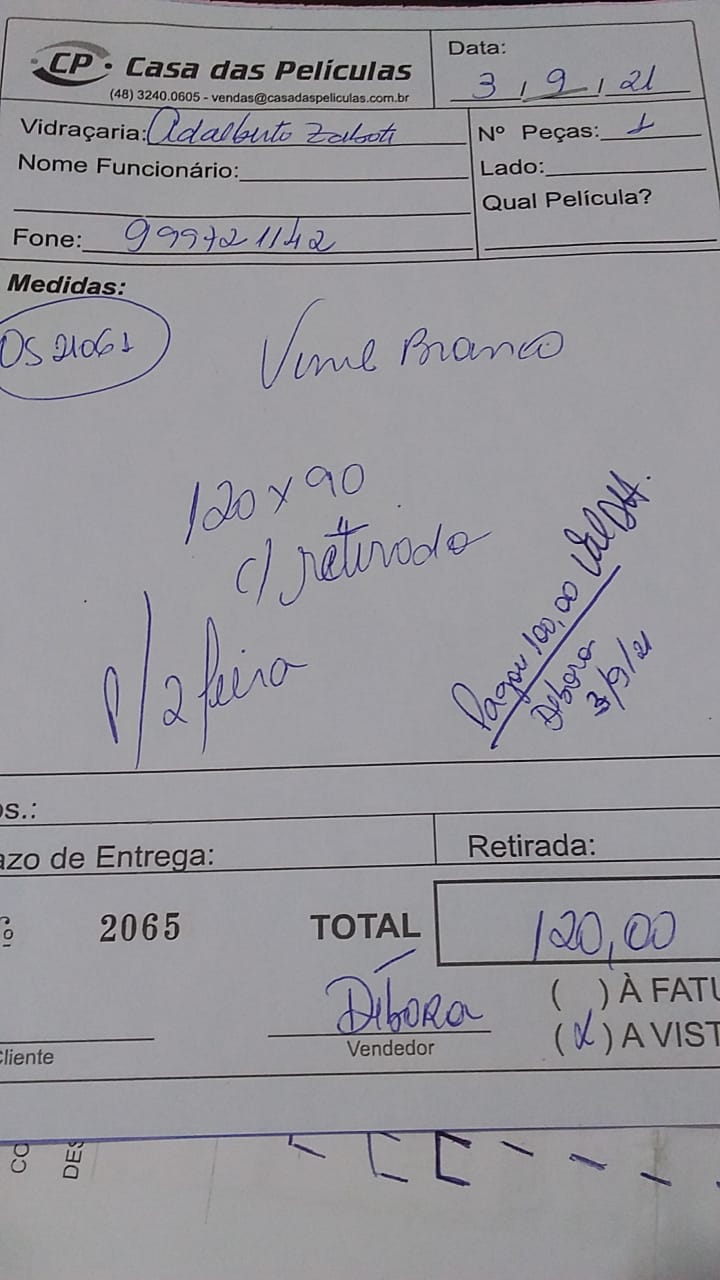 CP. Casa das Películas
(48) 3240.0605 - vendas@casadaspeliculas.com.br
Data:
3 / 9 / 21
Vidraçaria: Adalberto Zaboti
Nº Peças: 1
Nome Funcionário:
Lado:
Qual Película?
Fone: 999721142
Medidas:
OS 21061
Vinil Branco
120 x 90
c/ retirada
p/ 2 feira
Pagou 100,00
Débora
3/9/21
os.:
azo de Entrega:
Retirada:
2065
TOTAL
120,00
Débora
( ) À FATU
(x) A VIST
Cliente
Vendedor
CO
DES